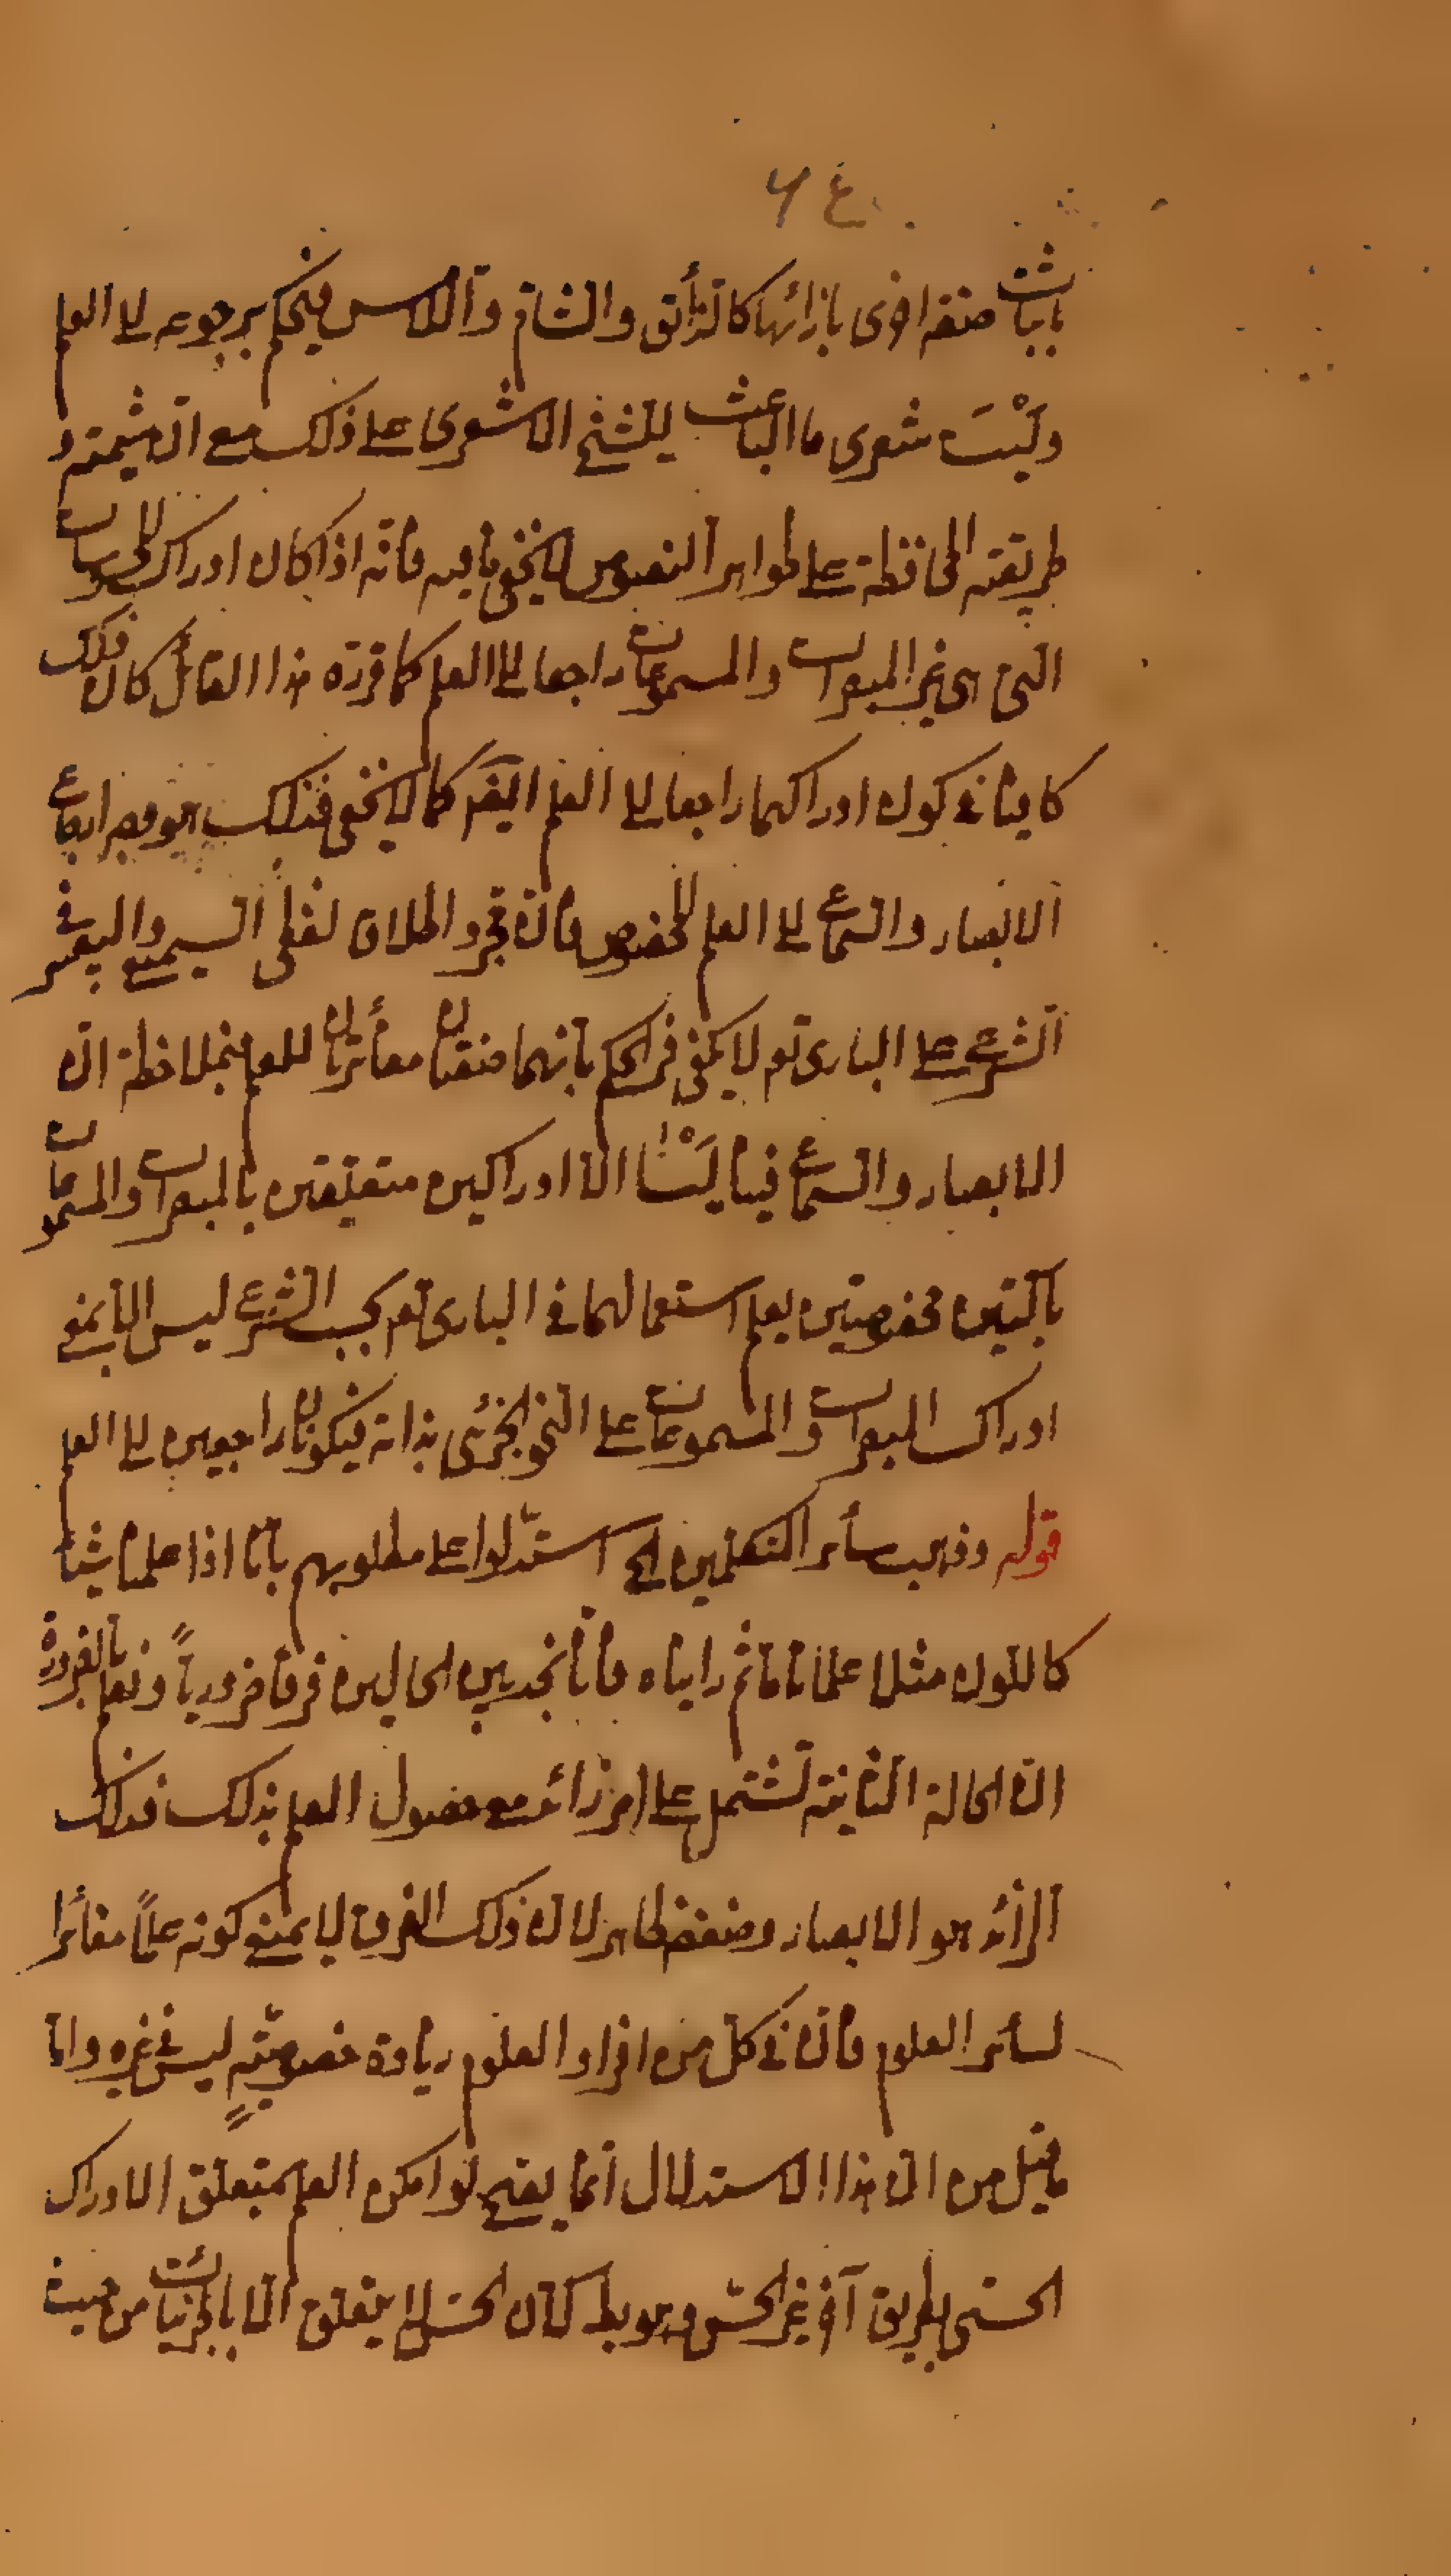 ٤٦
باثبات صفة اخرى بازائها كالذائق والشام واللامس فيحكم برجوعه الى العلم
وليْتَ شعرى ما الباعث للشيخ الاشعرى على ذلك مع انّ شيمته و
طريقته المحافظة على ظواهر النصوص لا يخفى ما فيه فانّه اذا كان ادراك المحسوسات
التى هى غير المبصرات والمسموعات راجعا الى العلم كما قرّره هذا القائل كان ذلك
كافيا فى كون ادراكهما راجعا الى العلم ايضا كما لا يخفى فذلك هو وجه ارجاع
الابصار والسماع الى العلم المخصوص فانّ مجرد اطلاق لفظى السميع والبصير فى
الشرع على البارى تعم لا يكفى فى الحكم بانهما صفتان مغائرتان للعلم فبملاحظة انّ
الابصار والسماع فينا ليْسَا الّا ادراكين متعلّقين بالمبصرات والمسموعات
بآلتين مخصوصتين يعلم استعمالهما فى البارى تعم بحسب الشرع ليس الّا بمعنى
ادراك المبصرات والمسموعات على النحو الجزئى بذاته فيكونان راجعين الى العلم
قوله وذهب سائر المتكلّمين الخ استدلّوا على مطلوبهم بانّا اذا علمنا شيئا
كاللون مثلا علما تامّا ثم رايناه فانّا نجد بين الحالين فرقا ضروريّاً ونعلم بالضرورة
انّ الحالة الثانية تشتمل على امر زائد مع حصول العلم بذلك فذلك
الزائد هو الابصار وضعفه ظاهر لانّ ذلك الفرق لا يمنع كونه علماً مغائرا
لسائر العلوم فانّ فى كلّ من افراد العلوم زيادة خصوصيّةٍ ليس فى غيره وامّا
ما قيل من انّ هذا الاستدلال انّما يصحّ لو امكن العلم بمتعلّق الادراك
الحسّى بطريق آخر غير الحسّ وهو بط لانّ الحسّ لا يتعلق الّا بالجزئيات من حيث